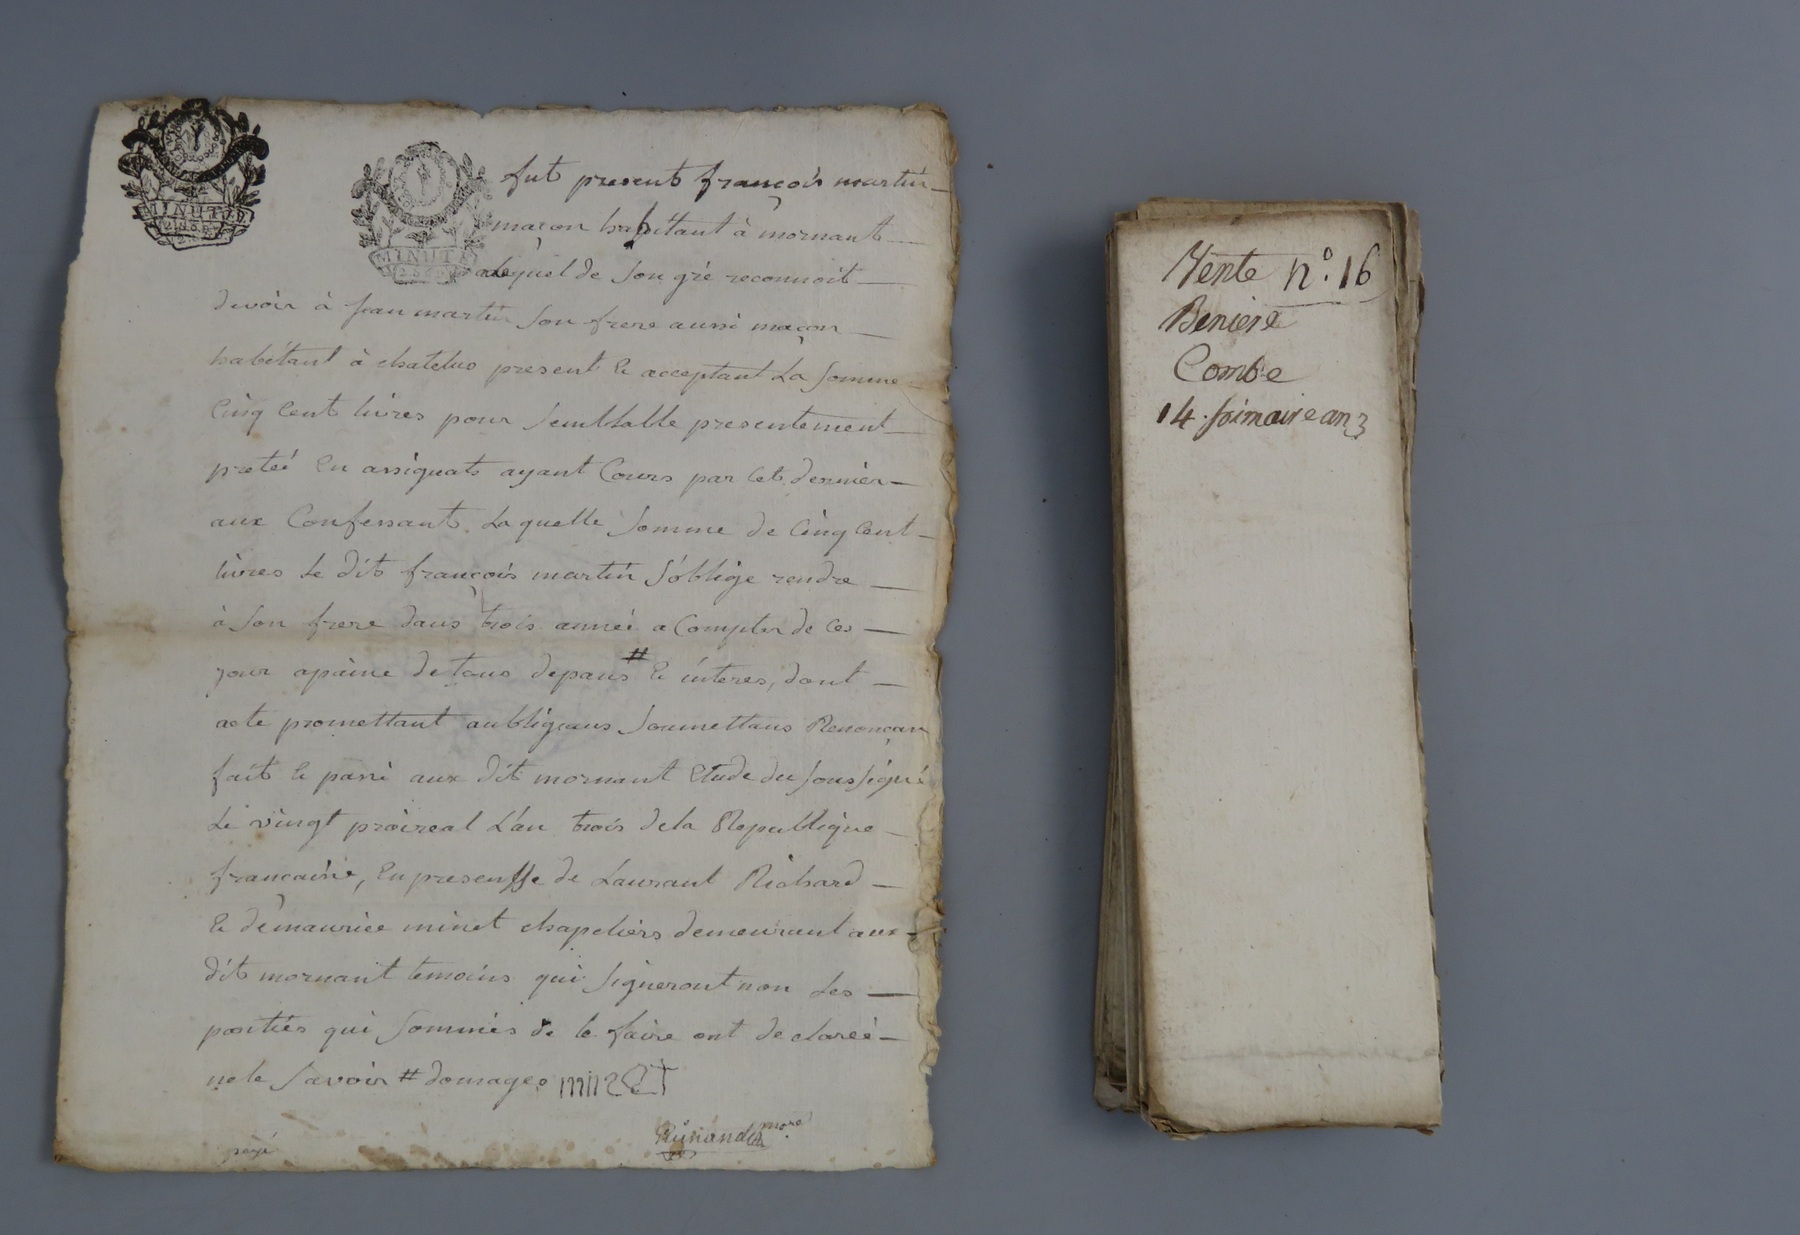 MINUTE
MINUTE
fut present françois martin
maçon habitant à mornant
lequel de son gré reconnoit
devoir à jean martin son frere aussi maçon
habitant à chatelus present & acceptant La somme
Cinq Cent livres pour semblable presentement
preteé En assignats ayant Cours par Cet dernier
aux Confessant. La quelle somme de Cinq Cent
livres Le dit françois martin s'oblige rendre
à son frere dans trois anneé a Compter de Ces
jour apaine de tous depans # & interes, dont
acte promettant aubligeans soumettans Renonçan
fait & passé aux dit mornant Etude du sous signé
Le vingt praireal L'an trois dela Republique
francaise, En presensse de Laurant Richard
& de maurice minet chapeliers demeurant aux
dit mornant temoins qui signeront non Les
parties qui sommés de le faire ont declareé
ne le savoir # domages minET
Vente n.º 16
Beniere
Combe
14. frimaire an 3